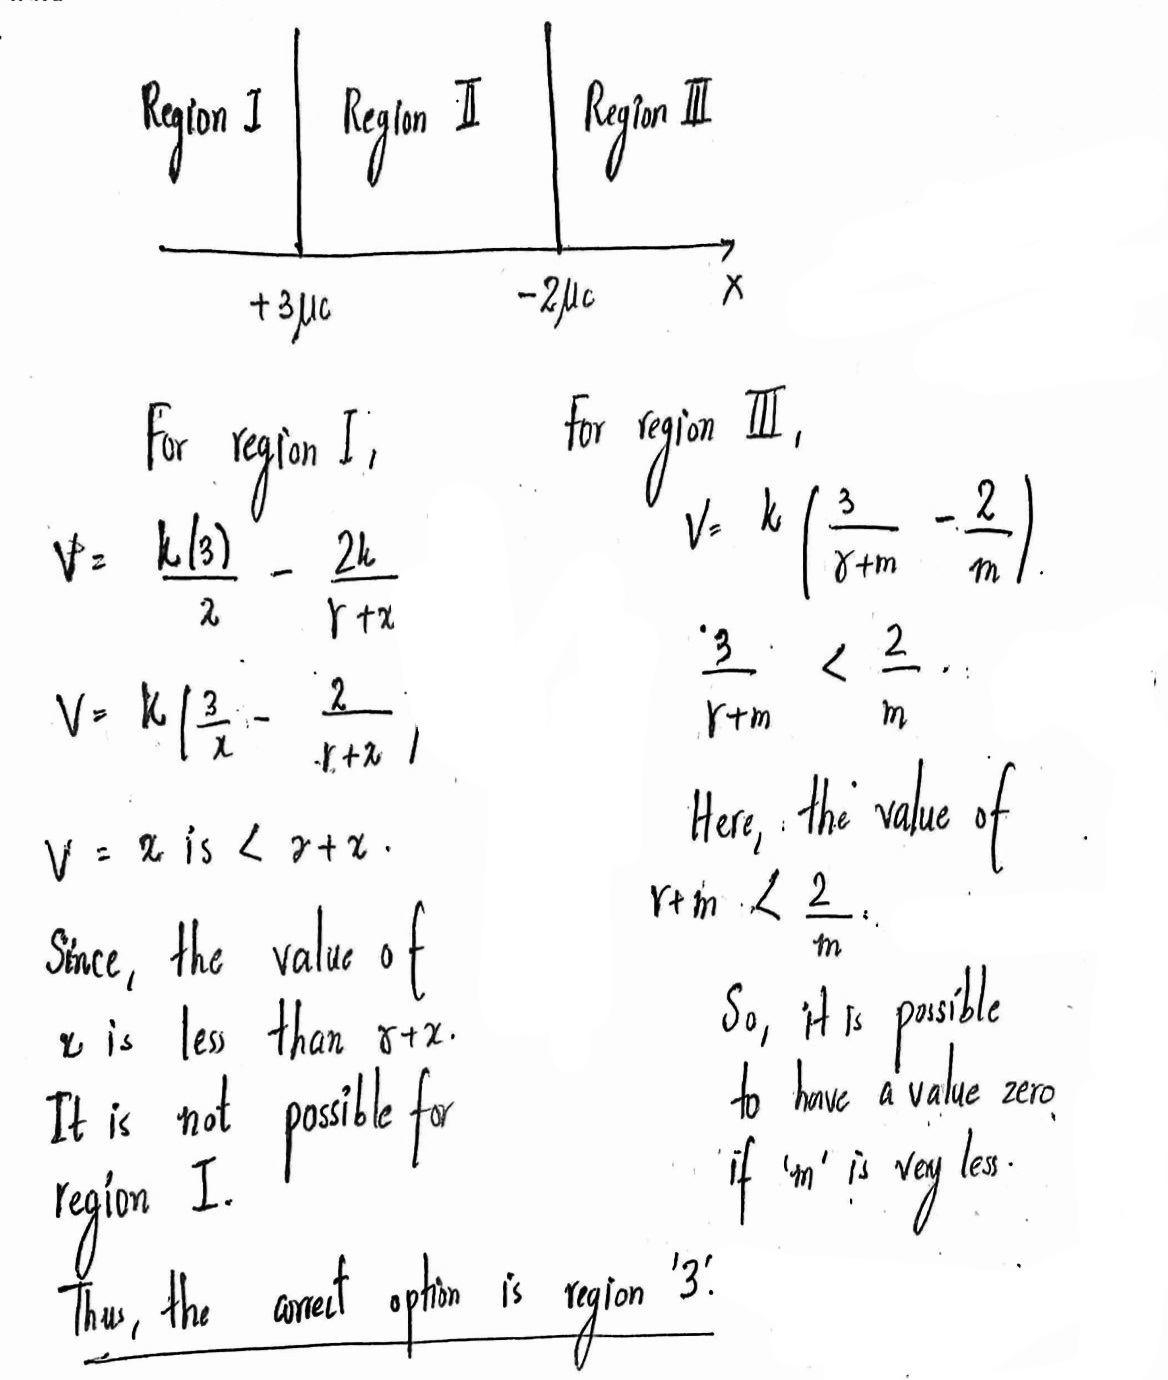 Region I
Region II
Region III
+3μc
-2μc
X
For region I,
V = k(3)/2 - 2k/r+x
V = k(3/x - 2/r+x)
V = x is < r+x.
Since, the value of
x is less than r+x.
It is not possible for
region I.
For region III,
V= k(3/r+m - 2/m).
3/r+m < 2/m
Here, the value of
r+m < 2/m
So, it is possible
to have a value zero
if 'm' is very less.
Thus, the correct option is region '3'.